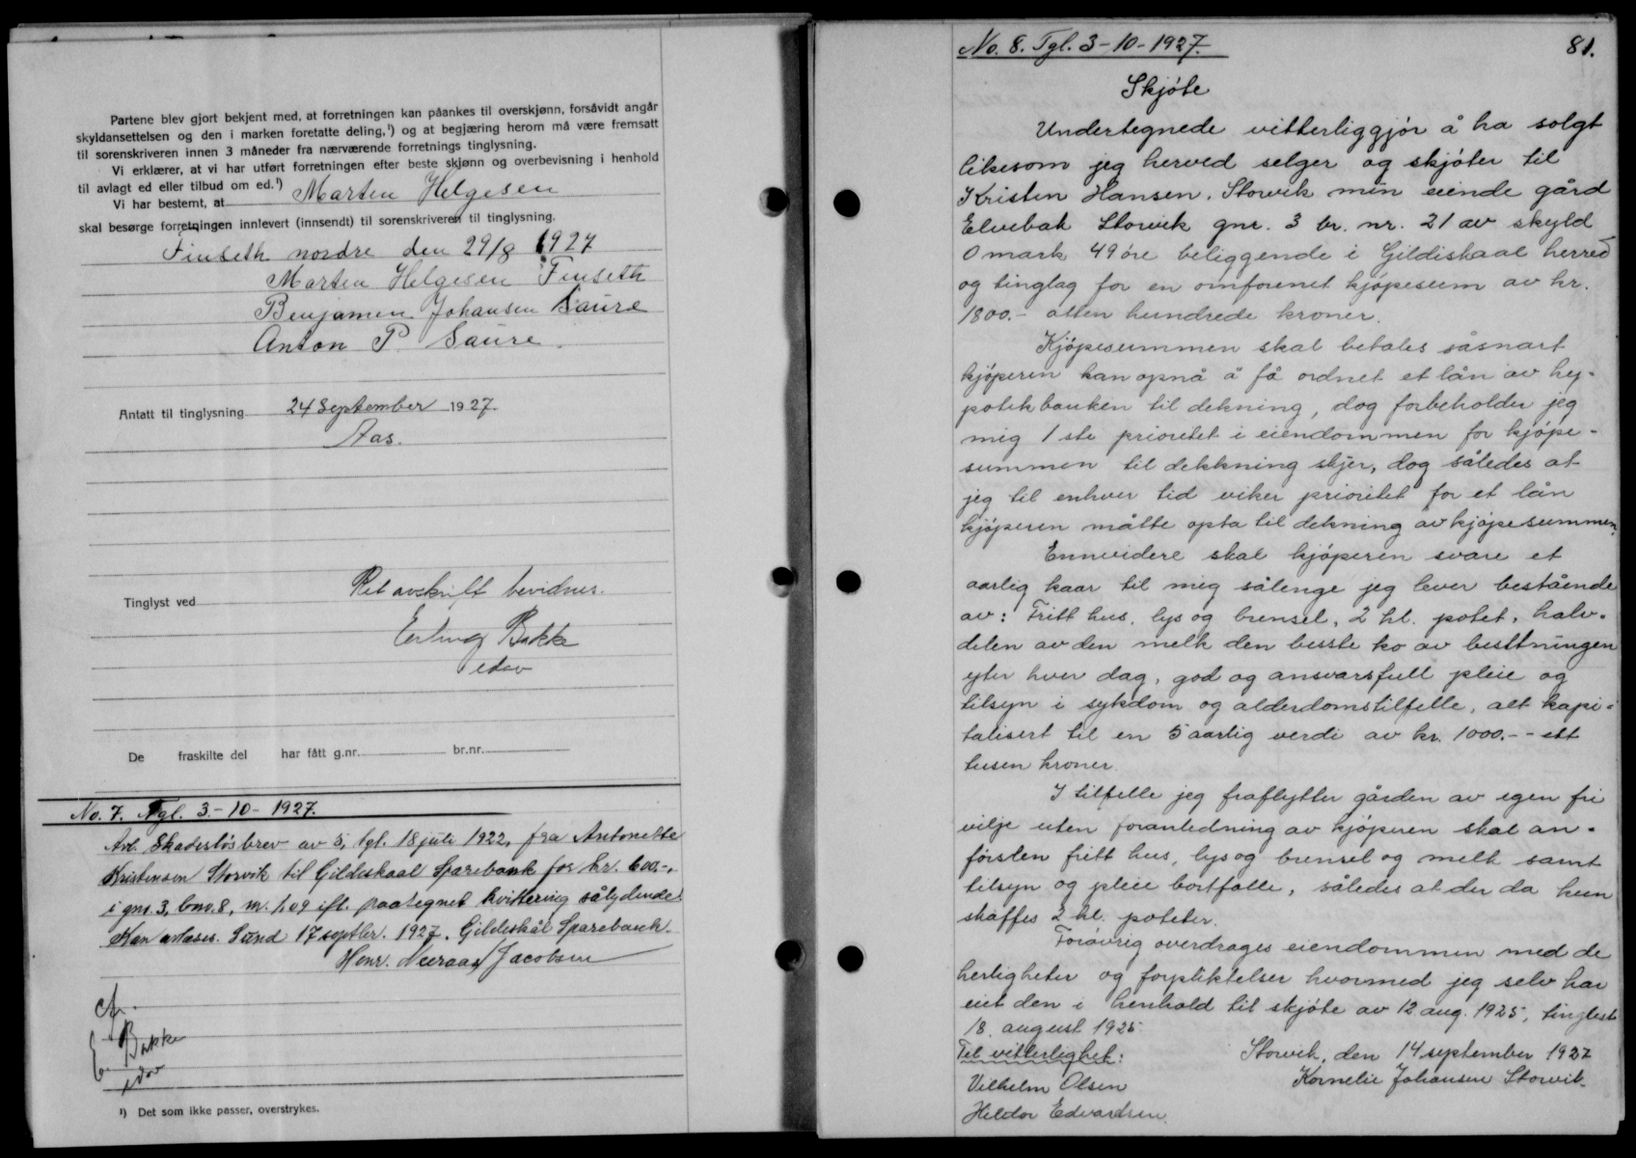 Partene blev gjort bekjent med, at forretningen kan påankes til overskjønn, forsåvidt angår
skyldansettelsen og den i marken foretatte deling,¹) og at begjæring herom må være fremsatt
til sorenskriveren innen 3 måneder fra nærværende forretnings tinglysning.
Vi erklærer, at vi har utført forretningen efter beste skjønn og overbevisning i henhold
til avlagt ed eller tilbud om ed.¹)
Vi har bestemt, at Marten Helgesen
skal besørge forretningen innlevert (innsendt) til sorenskriveren til tinglysning.
Finseth nordre den 29/8 1927
Marten Helgesen Finseth
Benjamen Johansen Saure
Anton P. Saure.
Antatt til tinglysning 24 September 1927.
Aas.
Tinglyst ved
Ret avskrift bevidnes.
Erling Bakke
edsv
De fraskilte del har fått g.nr. br.nr.
No. 7. Tgl. 3-10-1927.
Avl. Skadesløsbrev av s, tgl. 18 juli 1922, fra Antonette
Kristensen Storvik til Gildeskaal Sparebank for kr. 600.-,
i gnr. 3, bnr. 8, m. h. 09 ifl. paategnet kvittering sålydende:
Kan avlæses. Sund 17 septbr. 1927. Gildeskål Sparebank.
Henr. Neeraas Jacobsen
cfr.
E. Bakke
edsv
¹) Det som ikke passer, overstrykes.
No. 8. Tgl. 3-10-1927.
81.
Skjøte
Undertegnede vitterliggjør å ha solgt
likesom jeg herved selger og skjøter til
Kristen Hansen, Storvik min eiende gård
Elvebak Storvik gnr. 3 br. nr. 21 av skyld
0 mark 49 øre beliggende i Gildiskaal herred
og tinglag for en omforenet kjøpesum av kr.
1800.- atten hundrede kroner.
Kjøpesummen skal betales såsnart
kjøperen kan opnå å få ordnet et lån av hy-
potekbanken til dekning, dog forbeholder jeg
mig 1ste prioritet i eiendommen for kjøpe-
summen til dekkning skjer, dog således at
jeg til enhver tid viker prioritet for et lån
kjøperen måtte opta til dekning av kjøpesummen.
Ennvidere skal kjøperen svare et
aarlig kaar til mig sålenge jeg lever bestående
av: Fritt hus, lys og brensel, 2 hl. potet, halv-
delen av den melk den beste ko av besttningen
yter hver dag, god og ansvarsfull pleie og
tilsyn i sykdom og alderdomstilfelle, alt kapi-
talisert til en 5 aarlig verdi av kr. 1000.-- ett
tusen kroner.
I tilfelle jeg fraflytter gården av egen fri
vilje uten foranledning av kjøperen skal an-
førsten fritt hus, lys og brensel og melk samt
tilsyn og pleie bortfalle, således at der da kun
skaffes 2 hl. poteter.
Forøvrig overdrages eiendommen med de
herligheter og forpliktelser hvormed jeg selv har
eiet den i henhold til skjøte av 12 aug. 1925, tinglest
18. august 1925.
Til vitterlighet:
Storvik, den 14 september 1927
Vilhelm Olsen
Kornelie Johansen Storvik.
Hildor Edvardsen.